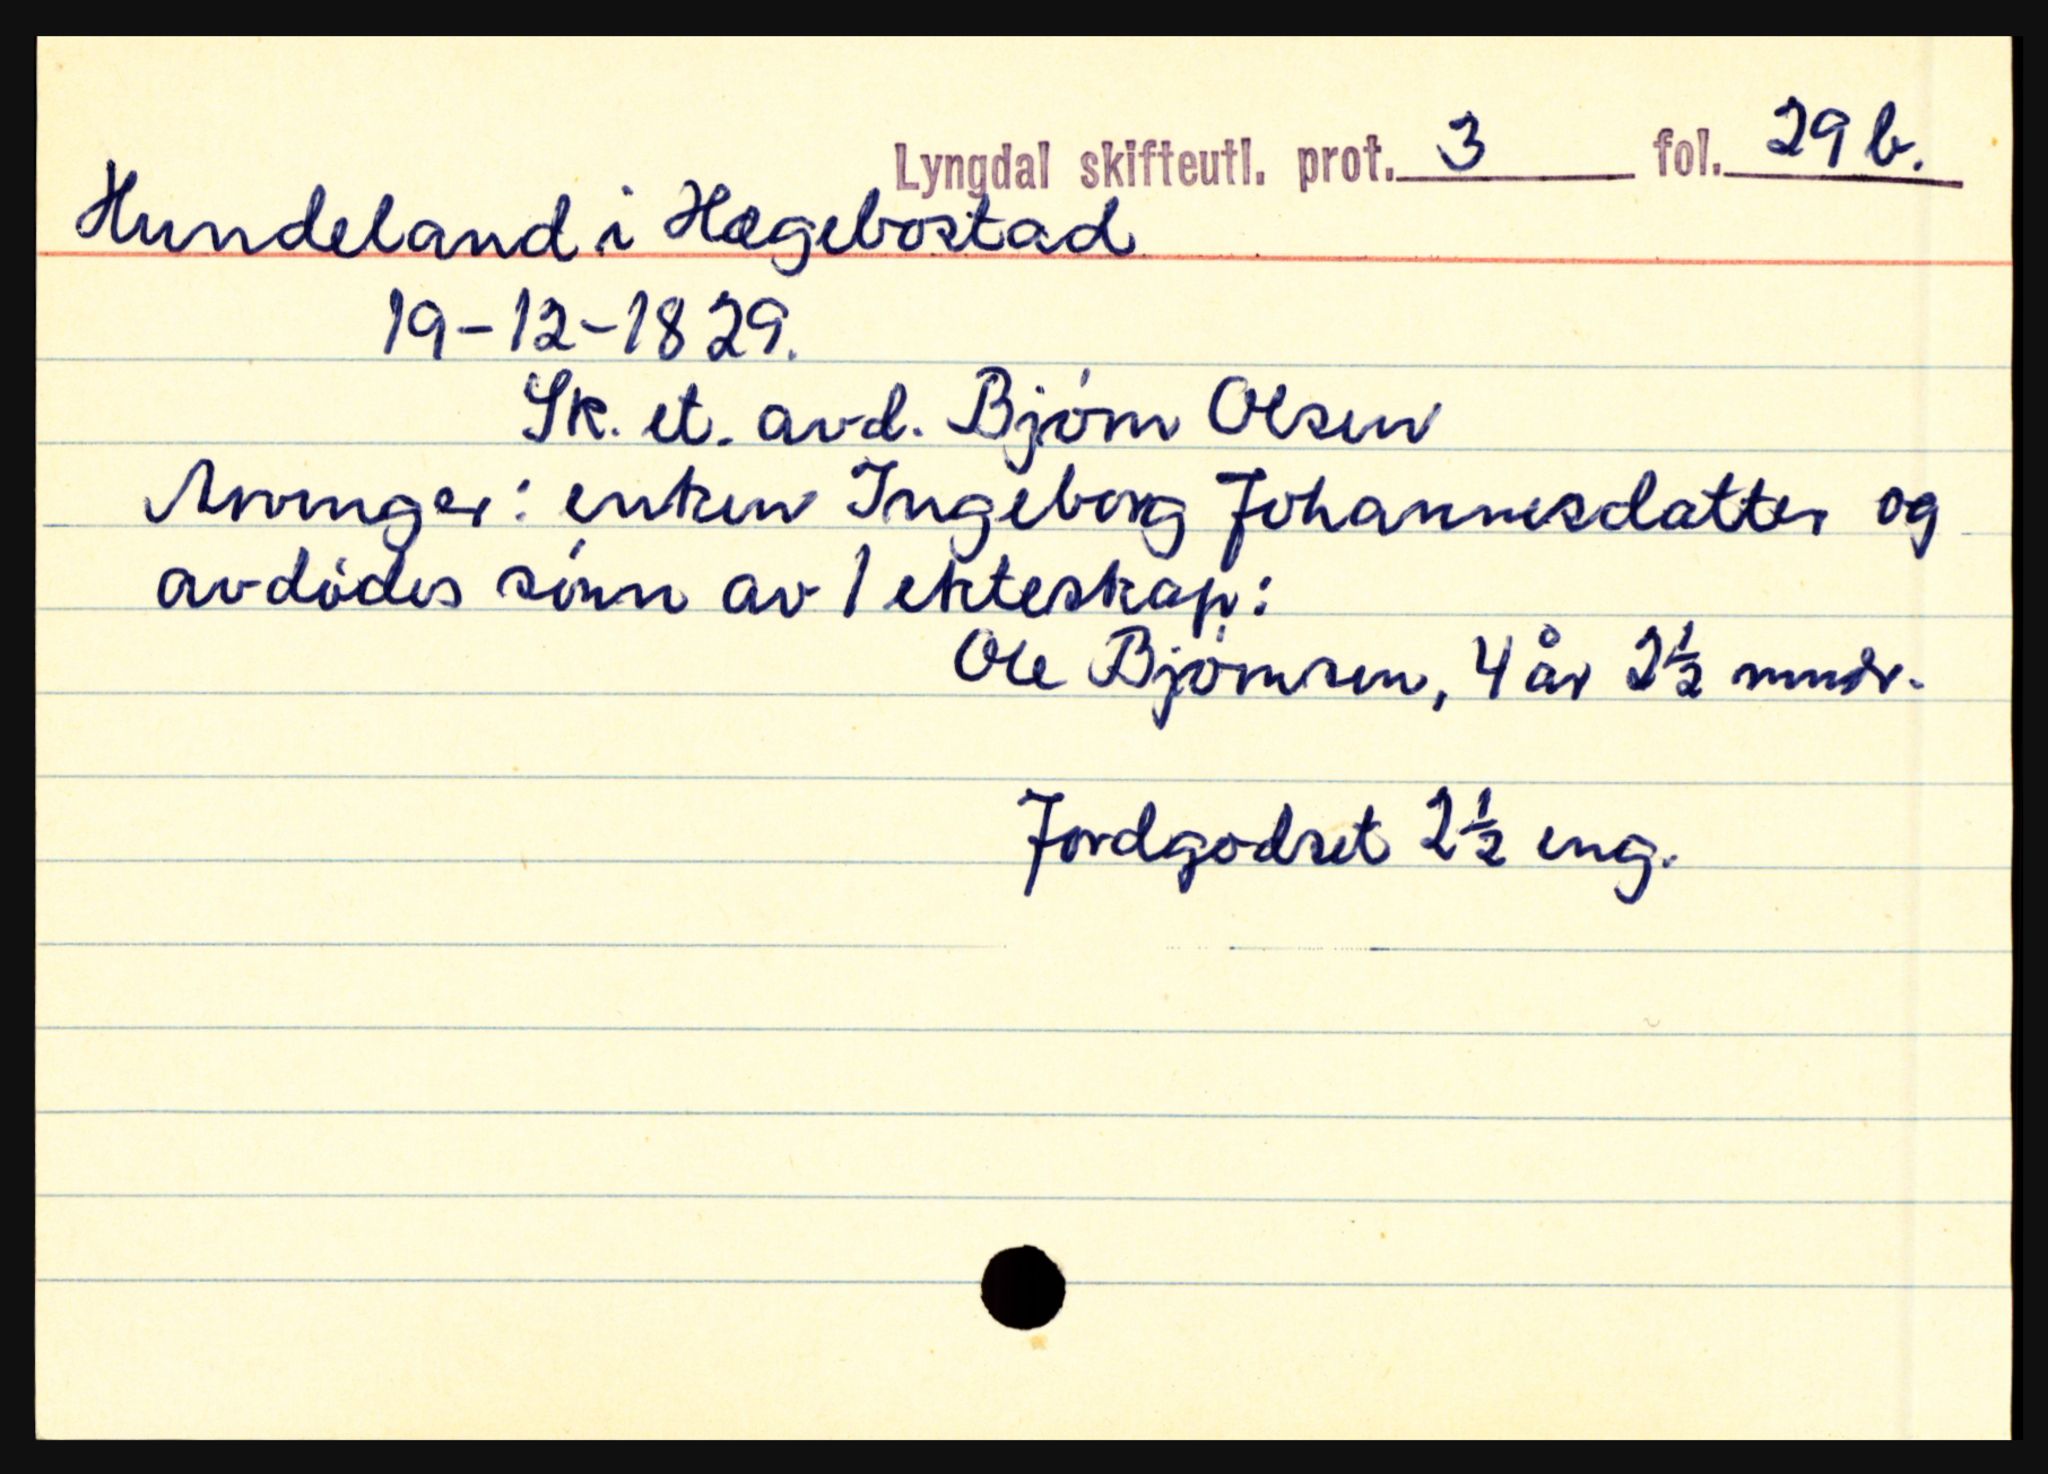 Lyngdal skifteutl. prot. 3 fol. 29 b.
Hundeland i Hægebostad
19-12-1829.
Sk. et. avd. Bjørn Olsen
Arvinger: enken Ingeborg Johannesdatter og
avdødes sønn av 1 ekteskap:
Ole Bjørnsen, 4 år 2½ mndr.
Jordgodset 2½ eng.